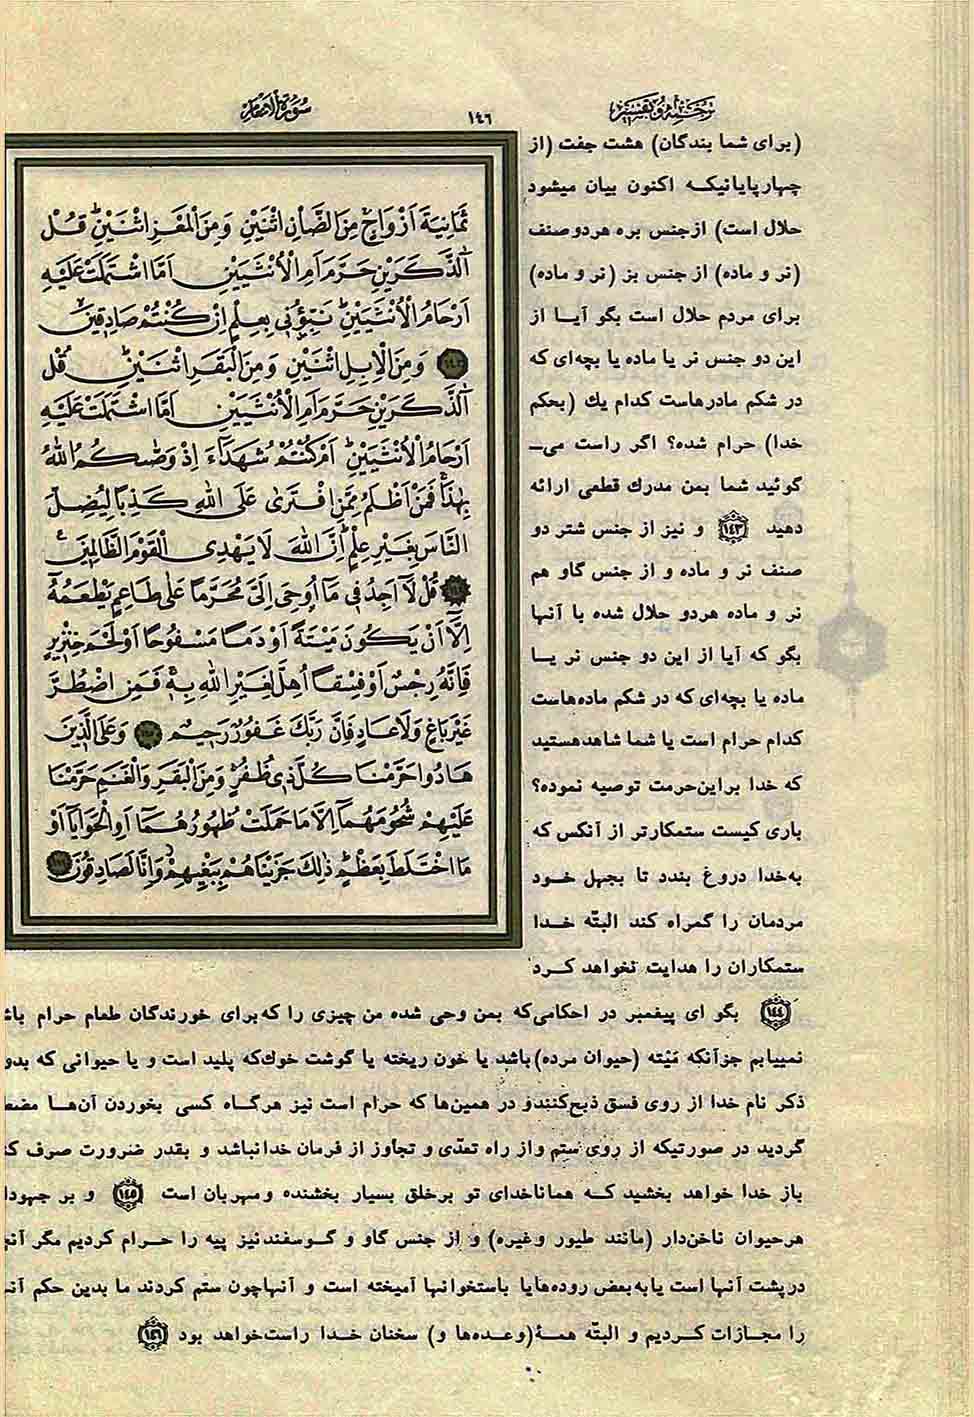 ترجمه و تفسیر
١٤٦
سورة الأنعام
(برای شما بندگان) هشت جفت (از
چهارپایانیکه اکنون بیان میشود
حلال است) از جنس بره هردو صنف
(نر و ماده) از جنس بز (نر و ماده)
برای مردم حلال است بگو آیا از
این دو جنس نر یا ماده یا بچه‌ای که
در شکم مادرهاست کدام یك (بحکم
خدا) حرام شده؟ اگر راست می‌ـ
گوئید شما بمن مدرك قطعی ارائه
دهید ﴿١٤٣﴾ و نیز از جنس شتر دو
صنف نر و ماده و از جنس گاو هم
نر و ماده هردو حلال شده با آنها
بگو که آیا از این دو جنس نر یا
ماده یا بچه‌ای که در شکم ماده‌هاست
کدام حرام است یا شما شاهد هستید
که خدا براین‌حرمت توصیه نموده؟
باری کیست ستمکارتر از آنکس که
به‌خدا دروغ بندد تا بجهل خود
مردمان را گمراه کند البتّه خدا
ستمکاران را هدایت نخواهد کرد
ثَمَانِيَةَ أَزْوَاجٍ مِنَ الضَّأْنِ اثْنَيْنِ وَمِنَ الْمَعْزِ اثْنَيْنِ قُلْ
آلذَّكَرَيْنِ حَرَّمَ أَمِ الْأُنْثَيَيْنِ أَمَّا اشْتَمَلَتْ عَلَيْهِ
أَرْحَامُ الْأُنْثَيَيْنِ نَبِّؤُنِي بِعِلْمٍ إِنْ كُنْتُمْ صَادِقِينَ
﴿١٤٣﴾ وَمِنَ الْإِبِلِ اثْنَيْنِ وَمِنَ الْبَقَرِ اثْنَيْنِ قُلْ
آلذَّكَرَيْنِ حَرَّمَ أَمِ الْأُنْثَيَيْنِ أَمَّا اشْتَمَلَتْ عَلَيْهِ
أَرْحَامُ الْأُنْثَيَيْنِ أَمْ كُنْتُمْ شُهَدَاءَ إِذْ وَصّٰكُمُ اللهُ
بِهٰذَا فَمَنْ أَظْلَمُ مِمَّنِ افْتَرٰى عَلَى اللهِ كَذِبًا لِيُضِلَّ
النَّاسَ بِغَيْرِ عِلْمٍ إِنَّ اللهَ لَا يَهْدِي الْقَوْمَ الظَّالِمِينَ
﴿١٤٤﴾ قُلْ لَا أَجِدُ فِي مَا أُوحِيَ إِلَيَّ مُحَرَّمًا عَلَى طَاعِمٍ يَطْعَمُهُ
إِلَّا أَنْ يَكُونَ مَيْتَةً أَوْ دَمًا مَسْفُوحًا أَوْ لَحْمَ خِنْزِيرٍ
فَإِنَّهُ رِجْسٌ أَوْ فِسْقًا أُهِلَّ لِغَيْرِ اللهِ بِهِ فَمَنِ اضْطُرَّ
غَيْرَ بَاغٍ وَلَا عَادٍ فَإِنَّ رَبَّكَ غَفُورٌ رَحِيمٌ ﴿١٤٥﴾ وَعَلَى الَّذِينَ
هَادُوا حَرَّمْنَا كُلَّ ذِي ظُفُرٍ وَمِنَ الْبَقَرِ وَالْغَنَمِ حَرَّمْنَا
عَلَيْهِمْ شُحُومَهُمَا إِلَّا مَا حَمَلَتْ ظُهُورُهُمَا أَوِ الْحَوَايَا أَوْ
مَا اخْتَلَطَ بِعَظْمٍ ذٰلِكَ جَزَيْنَاهُمْ بِبَغْيِهِمْ وَإِنَّا لَصَادِقُونَ ﴿١٤٦﴾
﴿١٤٤﴾ بگو ای پیغمبر در احکامی‌که بمن وحی شده من چیزی را که برای خورندگان طعام حرام باش
نمییابم جزآنکه مَیْته (حیوان مرده) باشد یا خون ریخته یا گوشت خوك‌که پلید است و یا حیوانی که بدو
ذکر نام خدا از روی فسق ذبح‌کنند و در همین‌ها که حرام است نیز هرگاه کسی بخوردن آن‌ها مضط
گردید در صورتیکه از روی ستم و از راه تعدّی و تجاوز از فرمان خدا نباشد و بقدر ضرورت صرف ک
باز خدا خواهد بخشید که همانا خدای تو برخلق بسیار بخشنده و مهربان است ﴿١٤٥﴾ و بر جهودا
هرحیوان ناخن‌دار (مانند طیور وغیره) و از جنس گاو و گوسفند نیز پیه را حرام کردیم مگر آنچ
درپشت آنها است یا به بعض روده‌ها یا باستخوانها آمیخته است و آنها چون ستم کردند ما بدین حکم آنه
را مجازات کردیم و البتّه همهٔ (وعده‌ها و) سخنان خدا راست خواهد بود ﴿١٤٦﴾